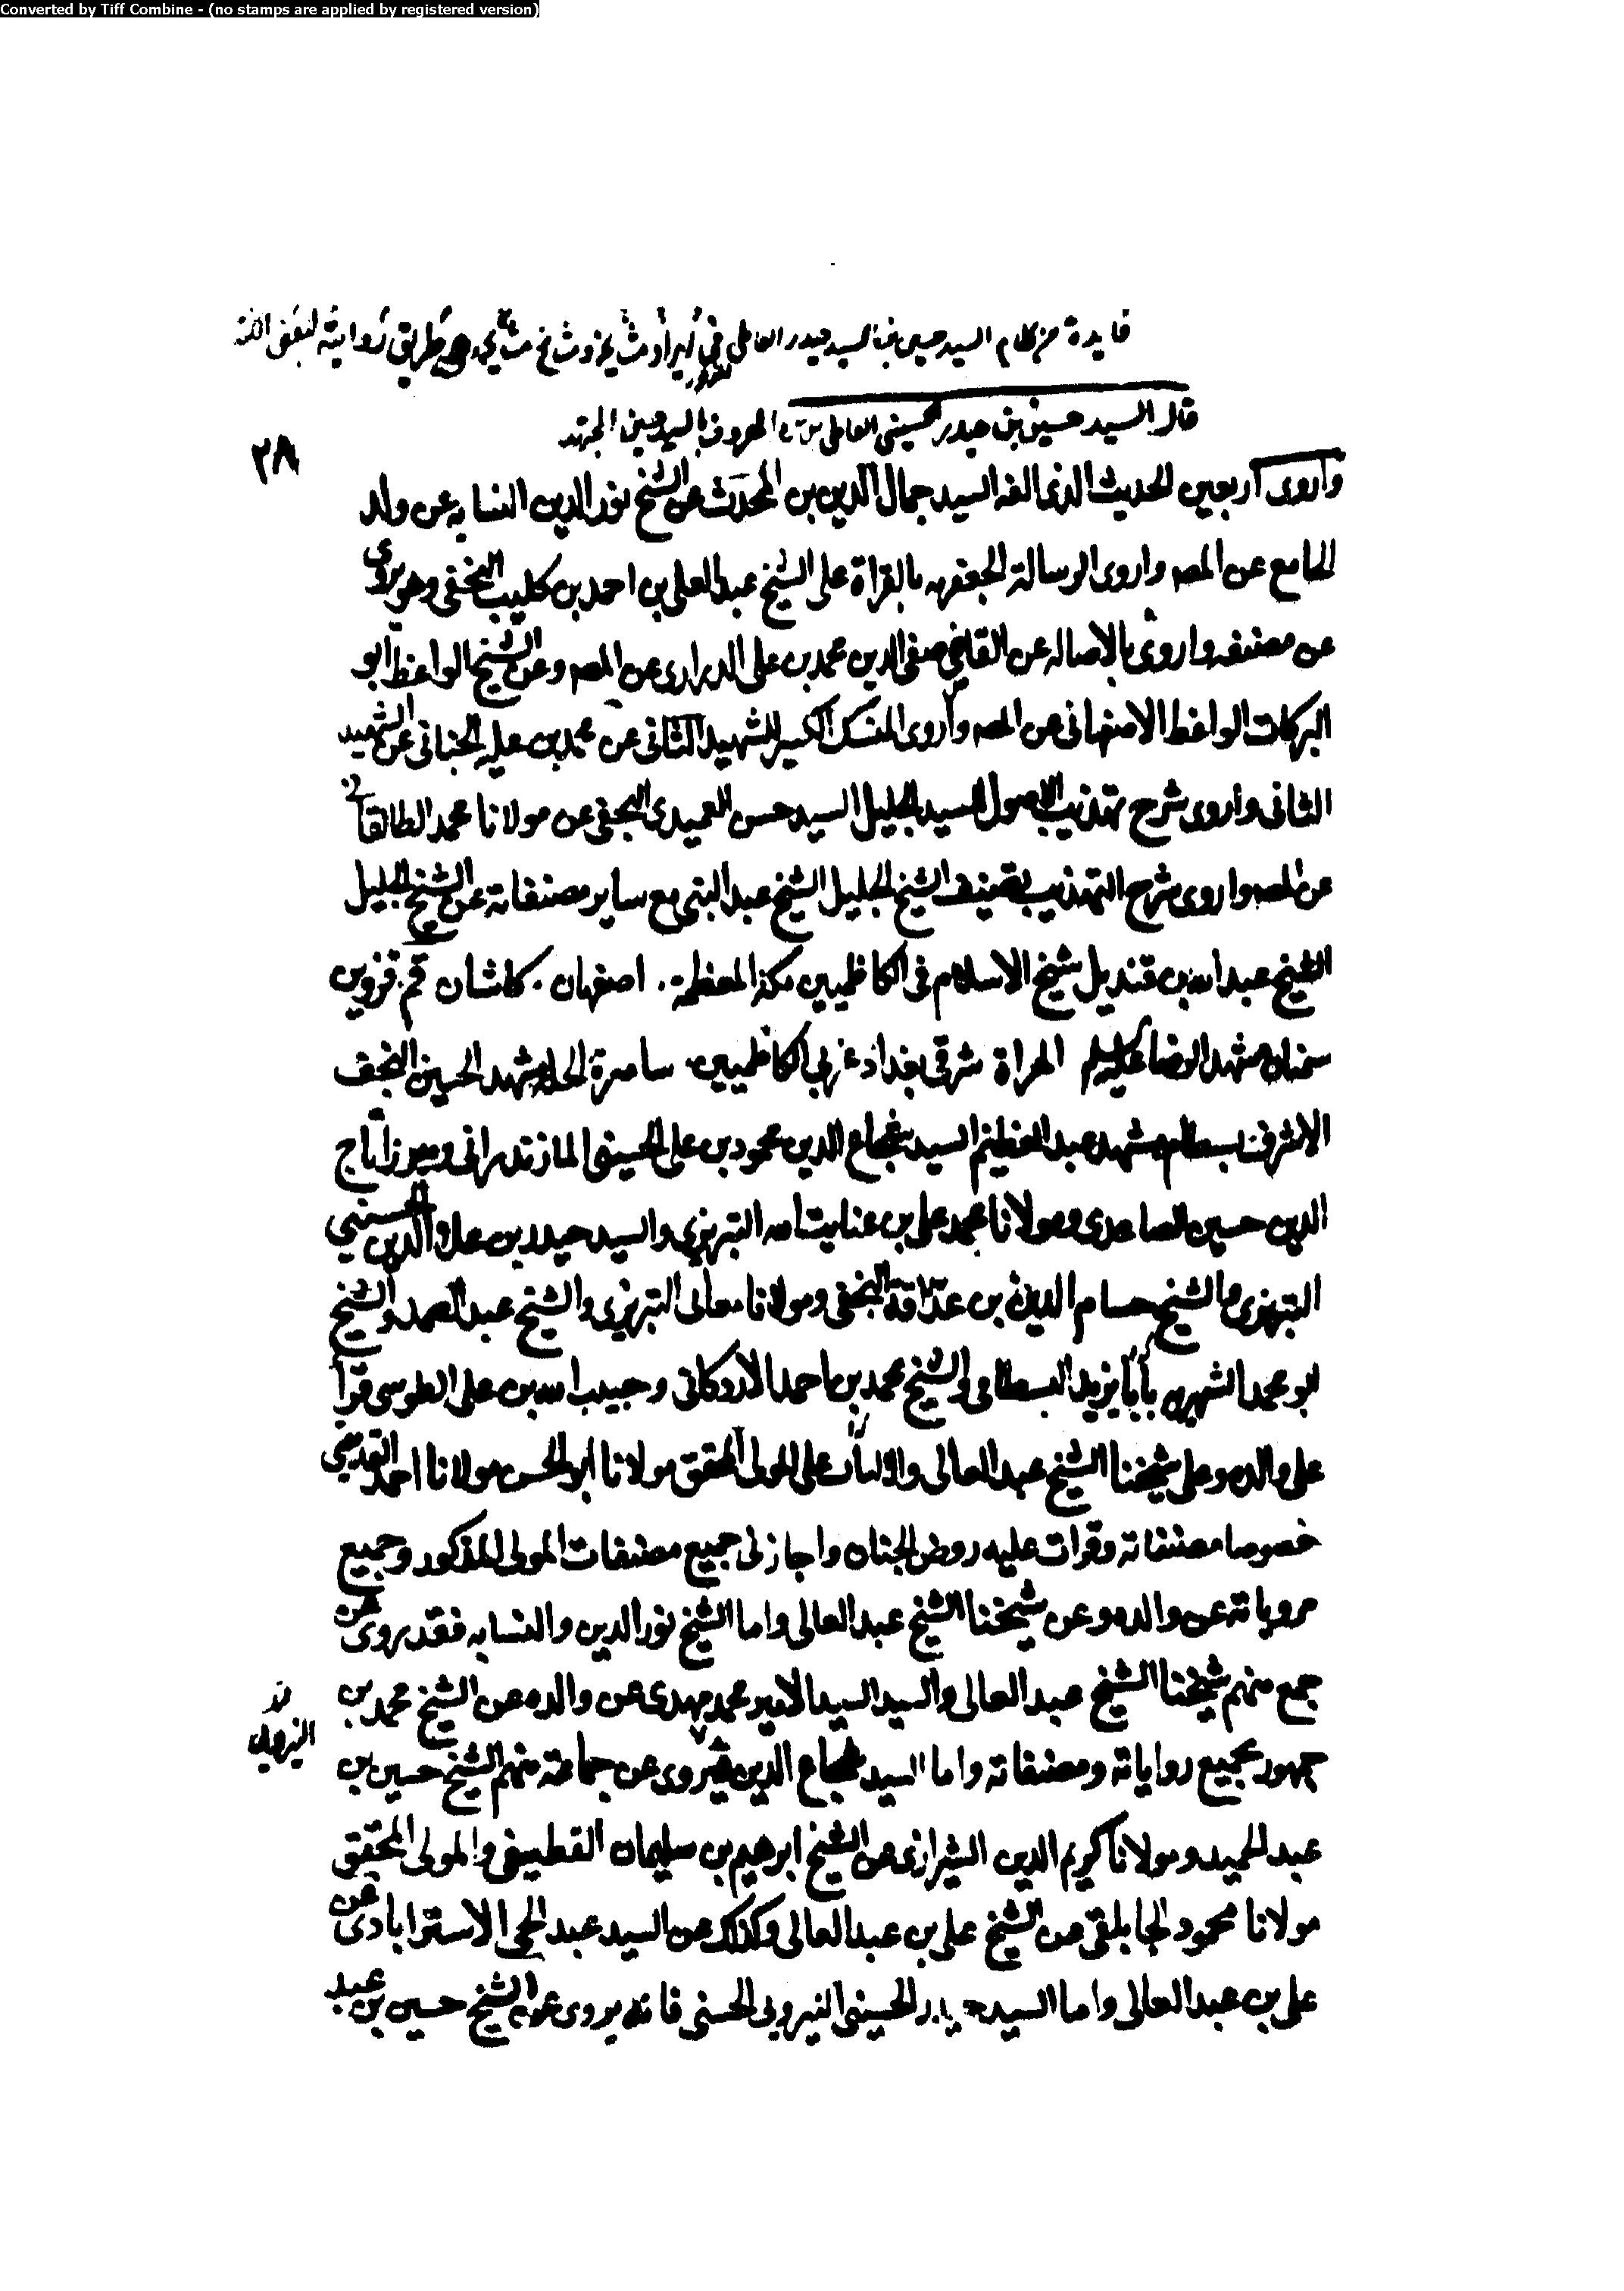 Converted by Tiff Combine - (no stamps are applied by registered version)
فايدة من كلام السيد حسين بن السيد حيدر العاملي في طريق رواية لبعض
قال السيد حسين بن حيدر الحسيني العاملي المعروف بالسيد حسين المجتهد
٢٨
واروى اربعين الحديث الذى الفه السيد جمال الدين بن المحدث عن الشيخ نور الدين النسابه عن والد
الجامع عن المصه واروى الرسالة الجعفريه بالقراة على الشيخ عبد العلى بن احمد بن كليب النجفى وهو يروى
عن مصنفه واروى بالاصاله عن القاضى صفى الدين محمد بن على عن المصه وعن الشيخ الواعظ ابو
البركات الواعظ الاصفهانى عن المصه واروى المنسك الكبير للشهيد الثانى عن محمد بن على عن الشهيد
الثانى واروى شرح تهذيب الاصول للسيد الجليل السيد حسن العميدى النجفى عن مولانا محمد الطالقانى
عن المصه واروى شرح التهذيب تصنيف الشيخ الجليل الشيخ عبد النبى مع ساير مصنفاته عن الشيخ الجليل
الشيخ عبد الله بن قنديل شيخ الاسلام فى الكاظميين مكة المعظمة. اصفهان. كاشان قم. قزوين
سمنان مشهد الرضا الهراة شرقى بغداد غربى الكاظميين. سامرة الحله مشهد الحسين النجف
الاشرف بسطام مشهد عبد العظيم السيد شجاع الدين محمود بن على الحسينى المازندرانى وميرزا تاج
الدين حسين الصاعدى ومولانا محمد على بن عنايت الله التبريزى والسيد حيدر بن علاء الدين الحسينى
التبريزى والشيخ حسام الدين بن عذاقة النجفى ومولانا معانى التبريزى والشيخ عبد الصمد والشيخ
ابو محمد الشهير بابايزيد البسطامى والشيخ محمد بن احمد الاردكانى وحبيب الله بن على الطوسى قرأ
على والده وعلى شيخنا الشيخ عبد العالى على المولى المحقق مولانا ابو الحسن مولانا احمد
خصوصا مصنفاته وقرات عليه روض الجنان واجاز لى جميع مصنفات المولى المذكور وجميع
مروياته عن والده وعن شيخنا الشيخ عبد العالى واما الشيخ نور الدين والنسابه فقد يروى عن
جمع منهم شيخنا الشيخ عبد العالى والسيد السيد الامير محمد مهدى عن والده عن الشيخ محمد بن
جمهور بجميع رواياته ومصنفاته واما السيد شجاع الدين فيروى عن جماعة منهم الشيخ حسين بن
عبد الحميد ومولانا كريم الدين الشيرازى عن الشيخ ابرهيم بن سليمان القطيفى والمولى المحقق
مولانا محمود الجابلقى عن الشيخ على بن عبد العالى وكذلك عن السيد عبد الحى الاسترابادى عن
على بن عبد العالى واما السيد حيدر الحسينى الحسنى فانه يروى عن الشيخ حسين بن عبد